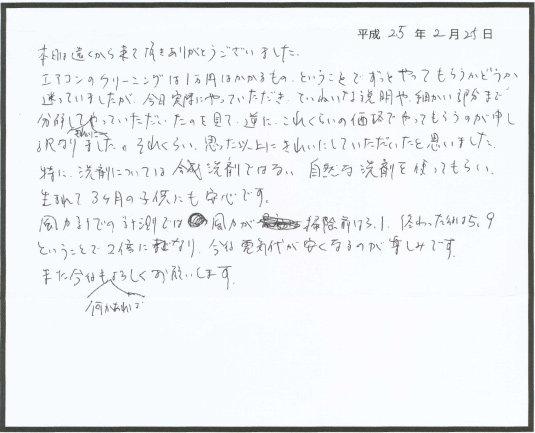 平成 25 年 2 月 25 日
本日は遠くから来て頂きありがとうございました。
エアコンのクリーニングは1万円はかかるもの、ということでずっとやってもらうかどうか
迷っていましたが、今日実際にやっていただき、ていねいな説明や、細かい部分まで
分解してやっていただいたのを見て、逆に、これくらいの価格でやってもらうのが申し
きれいに
訳なりました。それくらい、思った以上にきれいにしていただいたと思いました。
特に、洗剤については合成洗剤ではなく、自然な洗剤を使ってもらい、
生まれて3ヶ月の子供にも安心です。
風力計での計測では 風力が 掃除前は3.1、終わった後は5.9
ということで2倍になり、今後電気代が安くなるのが楽しみです。
また今後もよろしくお願いします。
何かあれば